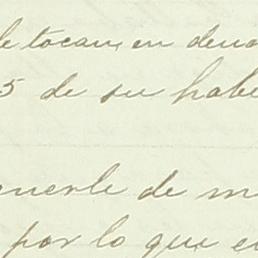 le tocan, en deuo
5 de su habe
nerle de m
por lo que e